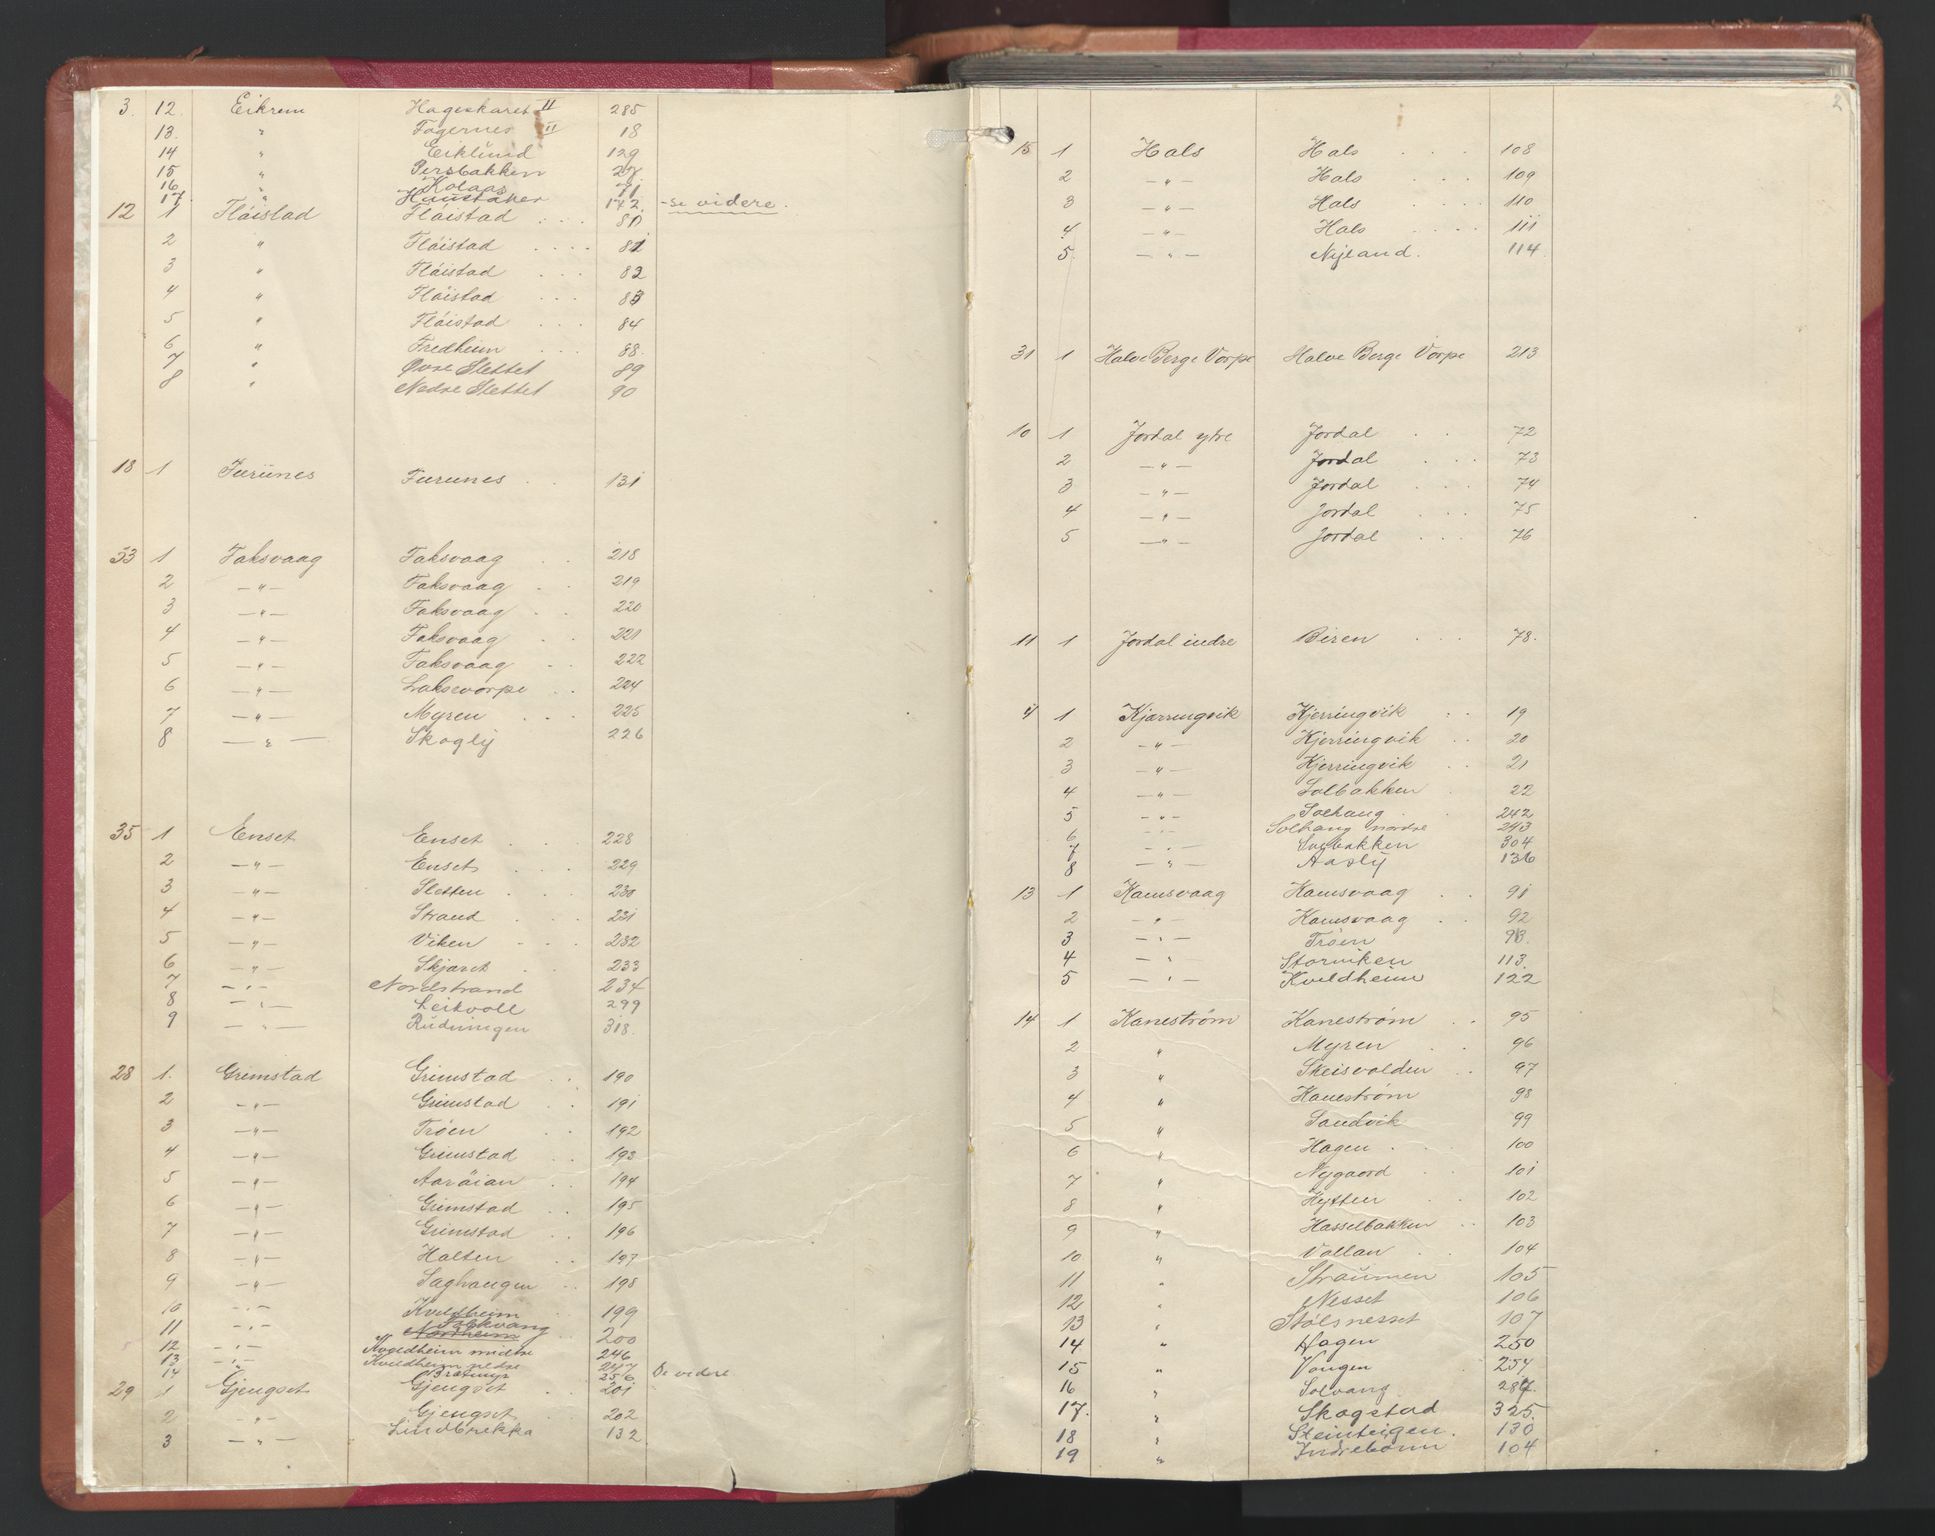 3. 12. Eikrem Hageskaret II 285
13. " Fagernes II 18
14 " Eiklund 129
15 " Persbakken 27
16 " Kolaas 71
17. " Haustaker 142. - se videre.
12 1 Fløistad Fløistad . . . 80
2 " Fløistad . . . . 81
3 " Fløistad . . . 82
4 " Fløistad . . . 83
5 " Fløistad . . . 84
6 " Fredheim . . . 88.
7 " Øvre Slettet 89
8 " Nedre Slettet 90
18 1 Furunes Furunes . . 131
33 1 Faksvaag Faksvaag . . 218
2 — " — Faksvaag . . 219
3 — " — Faksvaag . . 220
4 — " — Faksvaag . . 221
5 — " — Faksvaag . . 222
6 — " — Laksevorpe . . 224
7 — " — Myren . . . 225
8 — " — Skogly 226
35 1 Enset Enset . . . 228
2 — " — Enset . . . 229
3 — " — Sletten . . . 230
4 — " — Strand . . . 231
5 — " — Viken . . . 232
6 — " — Skjæret . 233
7 — " — Nordstrand 234
8 — " — Leikvoll 299
9 — " — Rudningen 318.
28 1. Grimstad Grimstad . . 190
2 — " — Grimstad . . 191
3 — " — Trøen . . 192
4 — " — Grimstad . . 193
5 — " — Aarøian . . 194
6 — " — Grimstad . . 195
7 — " — Grimstad . . 196
8 — " — Halten . . 197
9 — " — Saghaugen . . 198
10 — " — Kveldheim . . 199
11 — " — Nordheim Solkvang 200
12 — " — Kveldheim midtre 246
13 — " — Kveldheim nedre 247
14 " Bratmyr 256 De videre
29 1 Gjengset Gjengset . 201
2 — " — Gjengset . 202
3 — " — Lindbrekka 132
2
15 1 Hals Hals . . . 108
2 — " — Hals . . . 109
3 — " — Hals . . . 110
4 — " — Hals . . . . 111
5 — " — Nyland. . . 114.
31 1 Halve Berge Vorpe Halve Berge Vorpe 213
10 1 Jordal ytre Jordal . . 72
2 — " — Jordal . . . 73
3 — " — Jordal . . . 74
4 — " — Jordal . . . 75
5 — " — Jordal . . . 76
11 1 Jordal indre Biren . . . 78.
4 1 Kjørringvik Kjerringvik . . 19
2 — " — Kjerringvik . . 20
3 — " — Kjerringvik . . 21
4 — " — Solbakken . 22
5 — " — Solhaug . . 242
6 — " — Solhaug nordre 243
7 — " — Solbakken 304
8 — " — Aasly 136
13 1 Kamsvaag Kamsvaag . . 91
2 — " — Kamsvaag . . 92
3 — " — Trøen 93.
4 — " — Storviken 113.
5 — " — Kveldheim 122
14 1 Kanestrøm Kanestrøm . . 95
2 " Myren . . 96
3 " Skeisvolden . . 97
4 " Kanestrøm 98
5 " Sandvik 99
6 " Hagen . . 100
7 " Nygaard . . 101
8 " Hytten . . 102
9 " Hasselbakken . . 103
10 " Vollan . . 104
11 " Straumen 105
12 " Nesset 106
13 " Stølsnesset 107
14 " Hagen 250
15 " Vangen 257
16 " Solvang 287.
17. " Skogstad 325.
18 " Steinteigen. 130
19 " Indrebønn 104